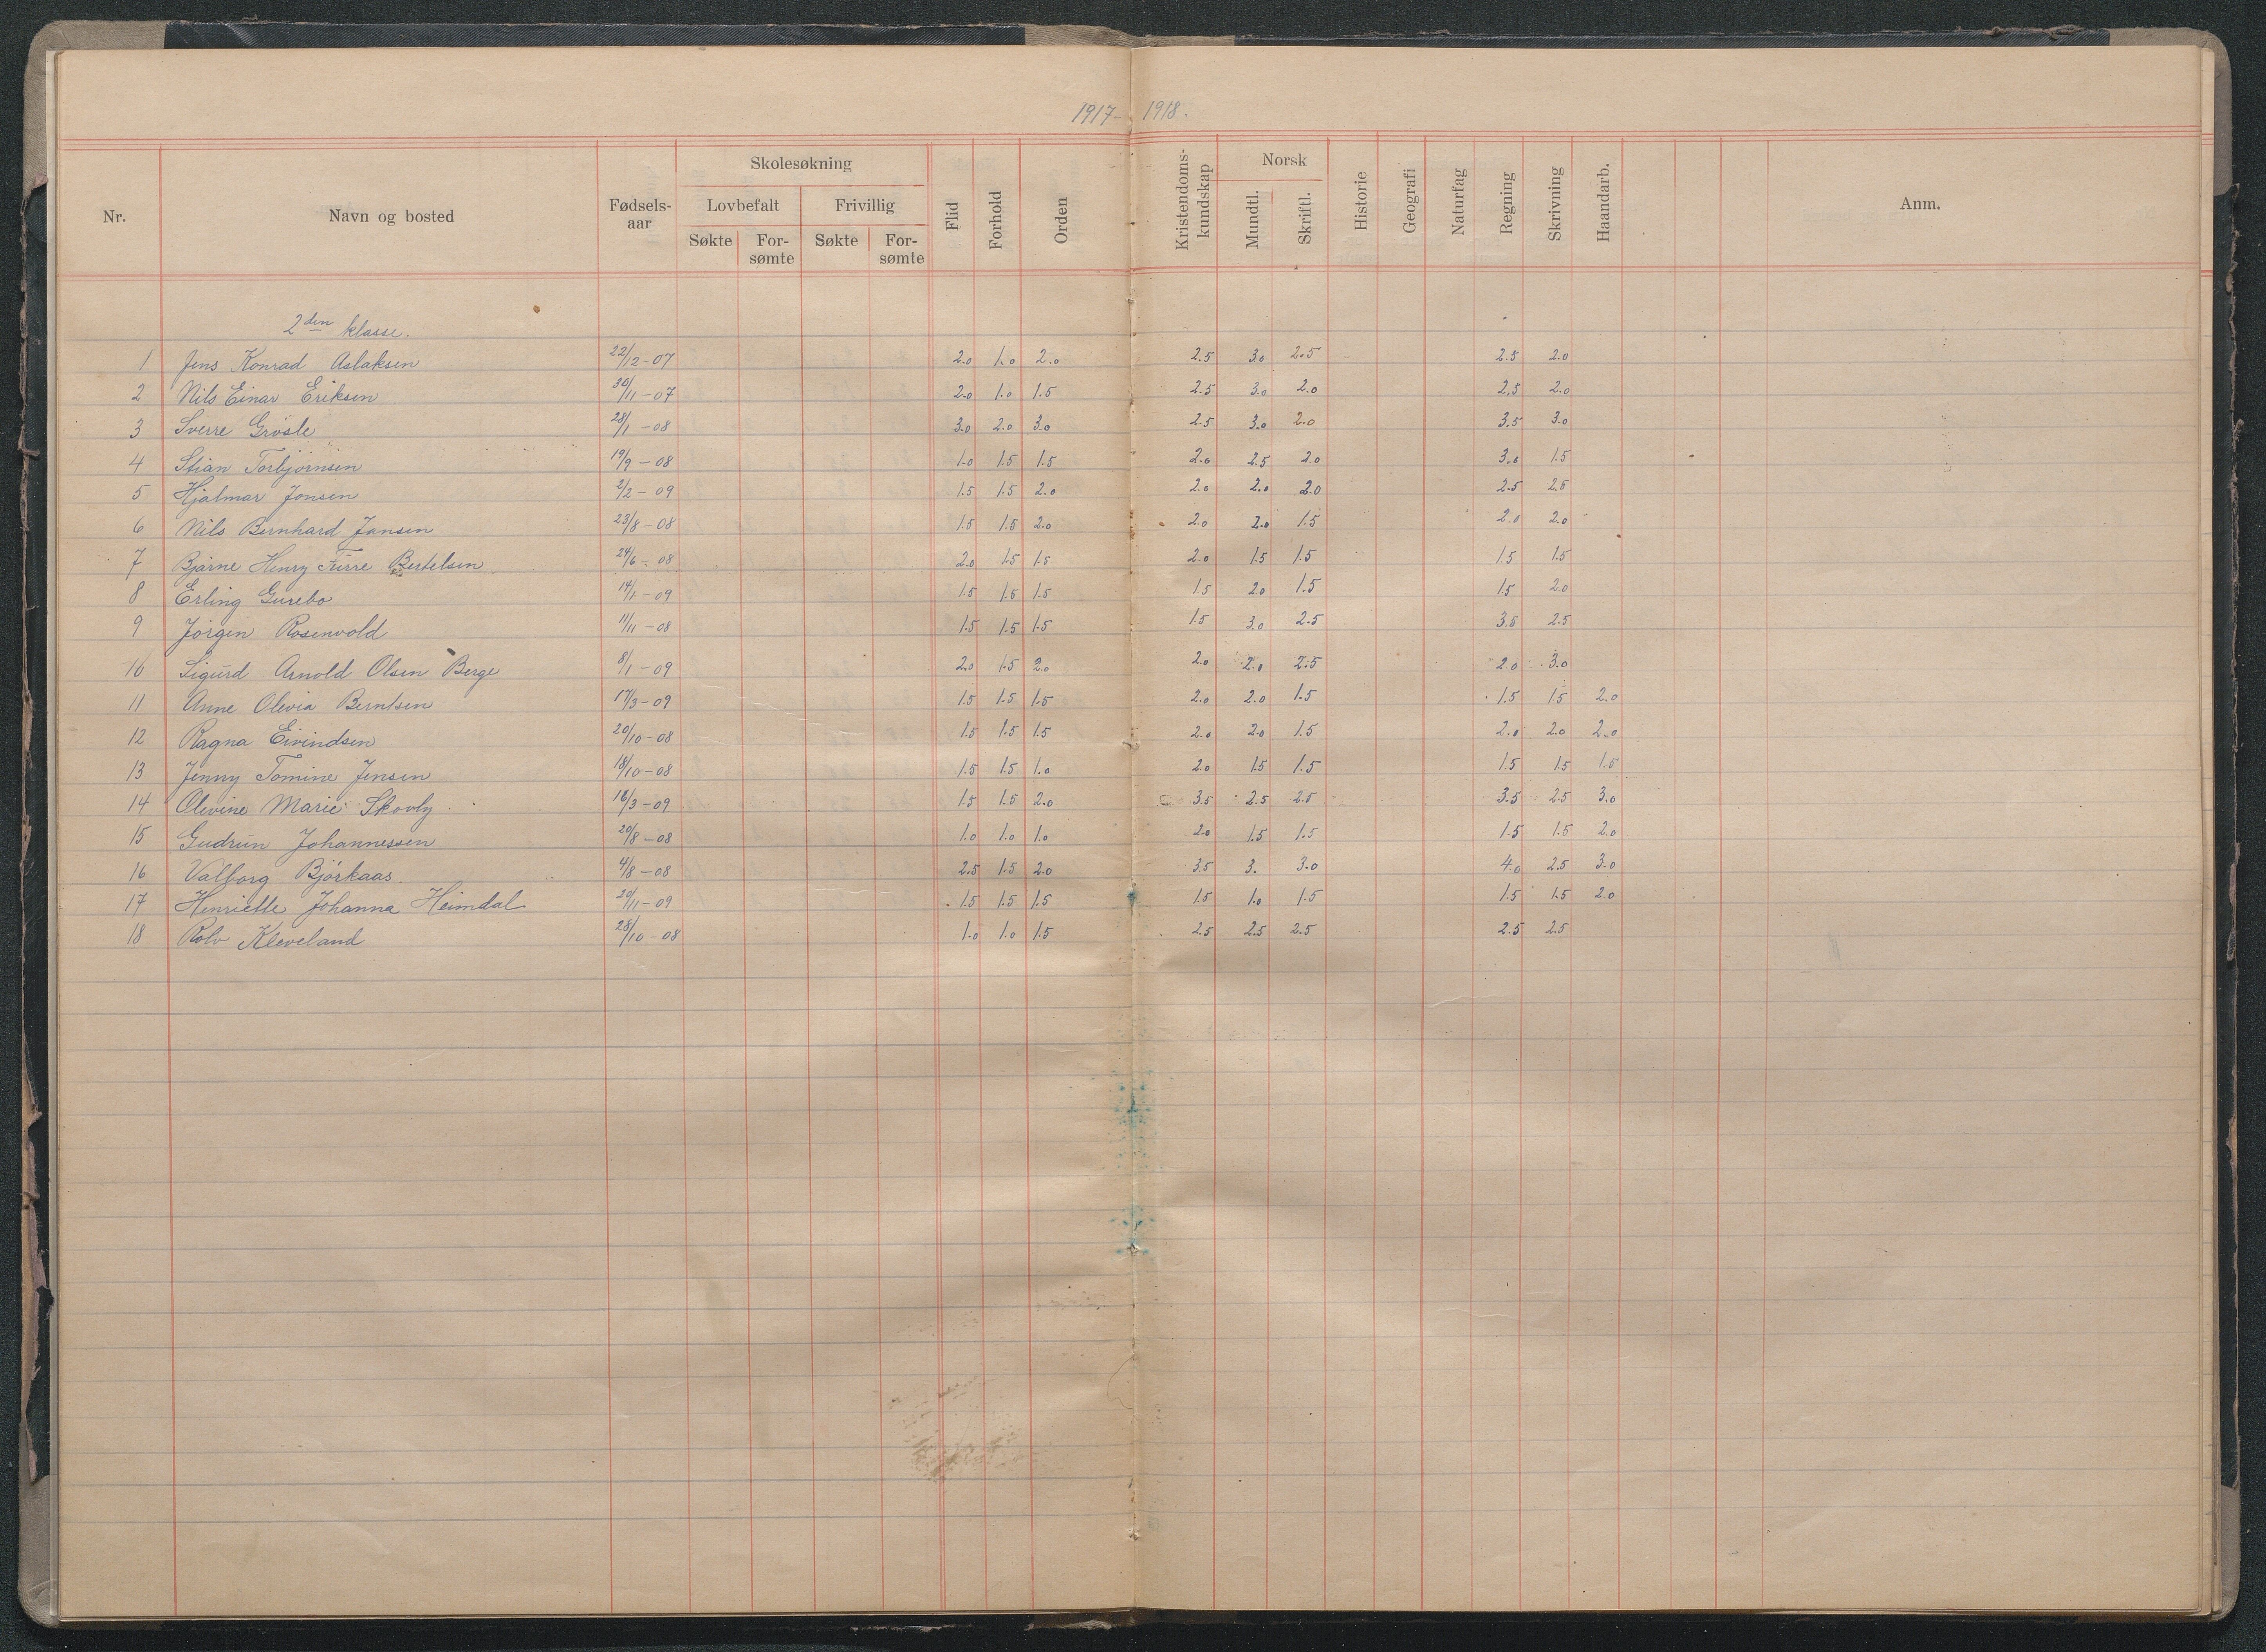 1917- 1918.
Nr. Navn og bosted Fødsels-aar Skolesøkning Lovbefalt Søkte For-sømte Frivillig Søkte For-sømte Flid Forhold Orden Kristendoms-kundskap Norsk Mundtl. Skriftl. Historie Geografi Naturfag Regning Skrivning Haandarb. Anm.
2den klasse.
1 Jens Konrad Aslaksen 22/12-07 2.0 1.0 2.0 2.5 3.0 2.5 2.5 2.0
2 Nils Einar Eriksen 30/11-07 2.0 1.0 1.5 2.5 3.0 2.0 2.5 2.0
3 Sverre Grøsle 28/1-08 3.0 2.0 3.0 2.5 3.0 2.0 3.5 3.0
4 Stian Torbjørnsen 19/9-08 1.0 1.5 1.5 2.0 2.5 2.0 3.0 1.5
5 Hjalmar Jonsen 2/2-09 1.5 1.5 2.0 2.0 2.0 2.0 2.5 2.5
6 Nils Bernhard Jansen 23/8-08 1.5 1.5 2.0 2.0 2.0 1.5 2.0 2.0
7 Bjarne Henry Furre Bertelsen 24/6-08 2.0 1.5 1.5 2.0 1.5 1.5 1.5 1.5
8 Erling Gurebo 14/1-09 1.5 1.5 1.5 1.5 2.0 1.5 1.5 2.0
9 Jørgen Rosenvold 11/11-08 1.5 1.5 1.5 1.5 3.0 2.5 3.5 2.5
10 Sigurd Arnold Olsen Berge 8/1-09 2.0 1.5 2.0 2.0 2.0 2.5 2.0 3.0
11 Anne Olevia Berntsen 17/3-09 1.5 1.5 1.5 2.0 2.0 1.5 1.5 1.5 2.0
12 Ragna Eivindsen 20/10-08 1.5 1.5 1.5 2.0 2.0 1.5 2.0 2.0 2.0
13 Jenny Tomine Jensen 18/10-08 1.5 1.5 1.0 2.0 1.5 1.5 1.5 1.5 1.5
14 Olevine Marie Skovly 16/3-09 1.5 1.5 2.0 3.5 2.5 2.5 3.5 2.5 3.0
15 Gudrun Johannessen 20/8-08 1.0 1.0 1.0 2.0 1.5 1.5 1.5 1.5 2.0
16 Valborg Bjørkaas. 4/8-08 2.5 1.5 2.0 3.5 3. 3.0 4.0 2.5 3.0
17 Henriette Johanna Heimdal 20/11-09 1.5 1.5 1.5 1.5 1.0 1.5 1.5 1.5 2.0
18 Rolv Kleveland 28/10-08 1.0 1.0 1.5 2.5 2.5 2.5 2.5 2.5